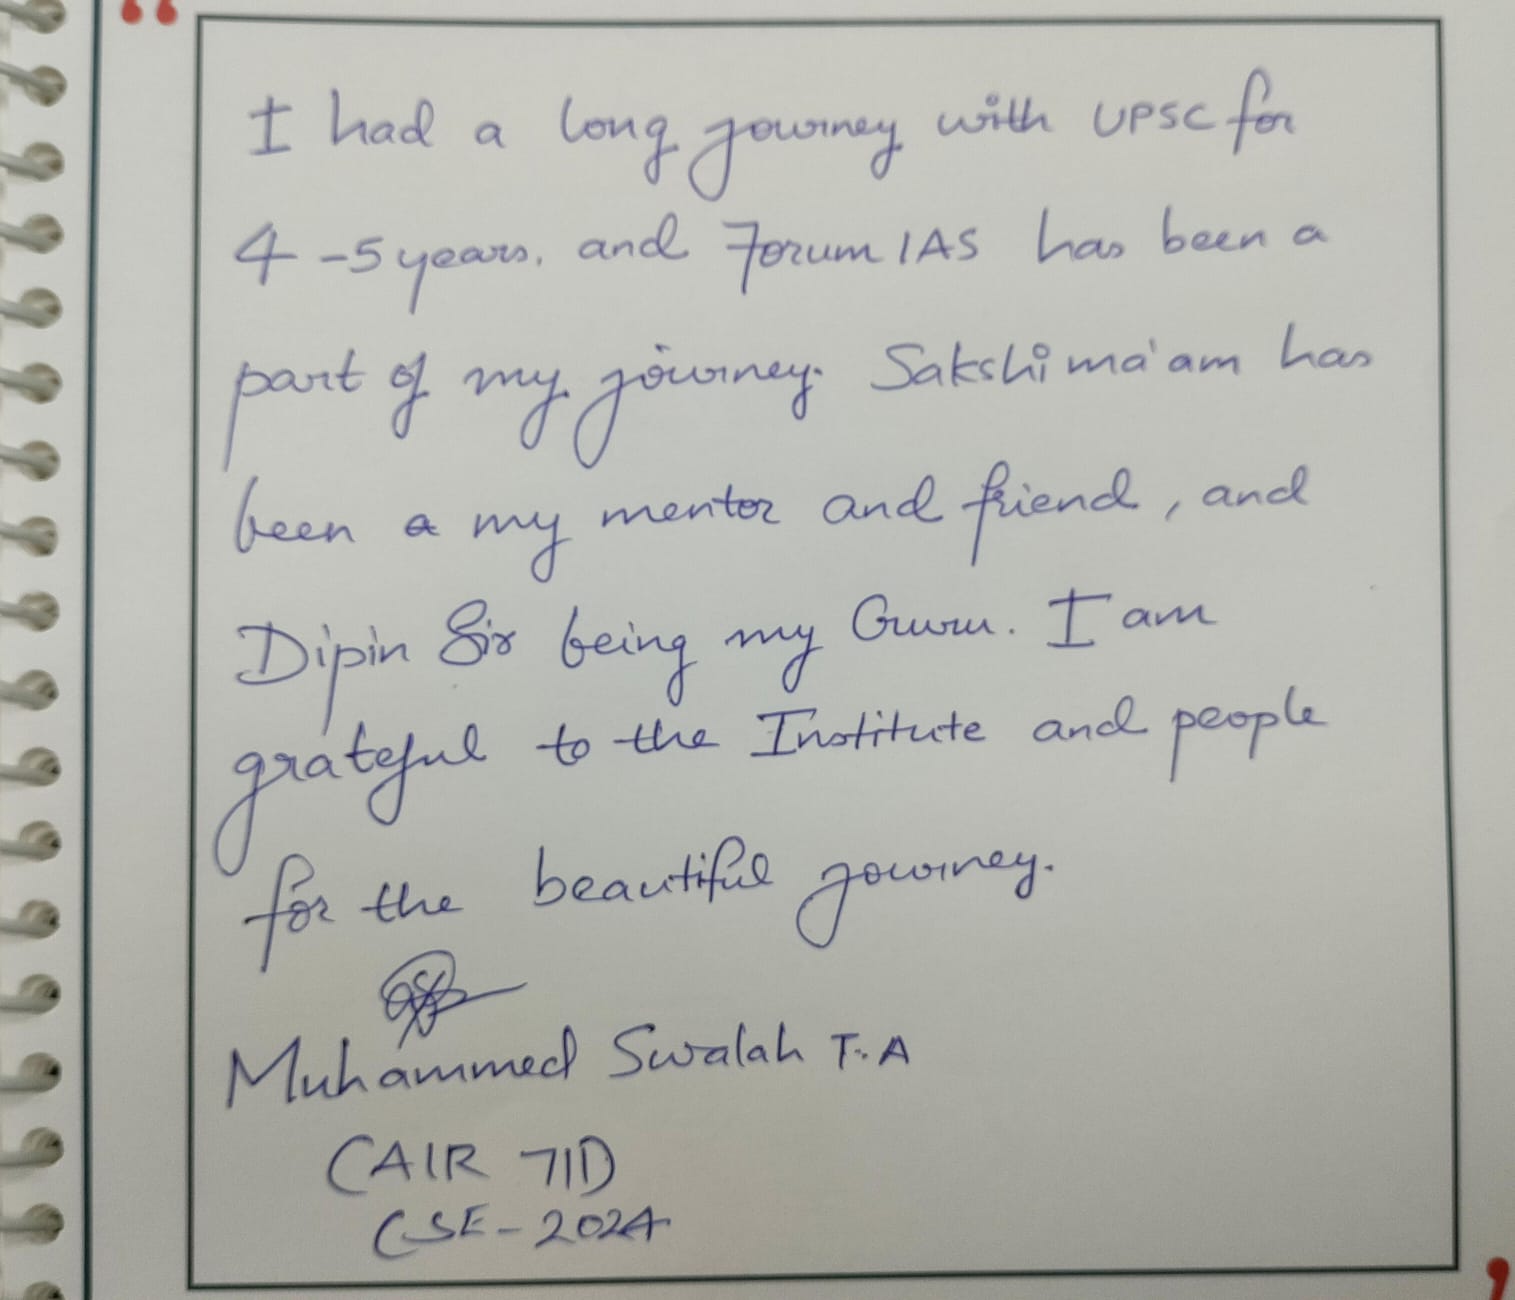 I had a long journey with UPSC for
4-5 years. and Forum IAS has been a
part of my journey. Sakshi ma'am has
been a my mentor and friend, and
Dipin Sir being my Guru. I am
grateful to the Institute and people
for the beautiful journey.
Muhammed Swalah T.A
(AIR 71)
CSE-2024